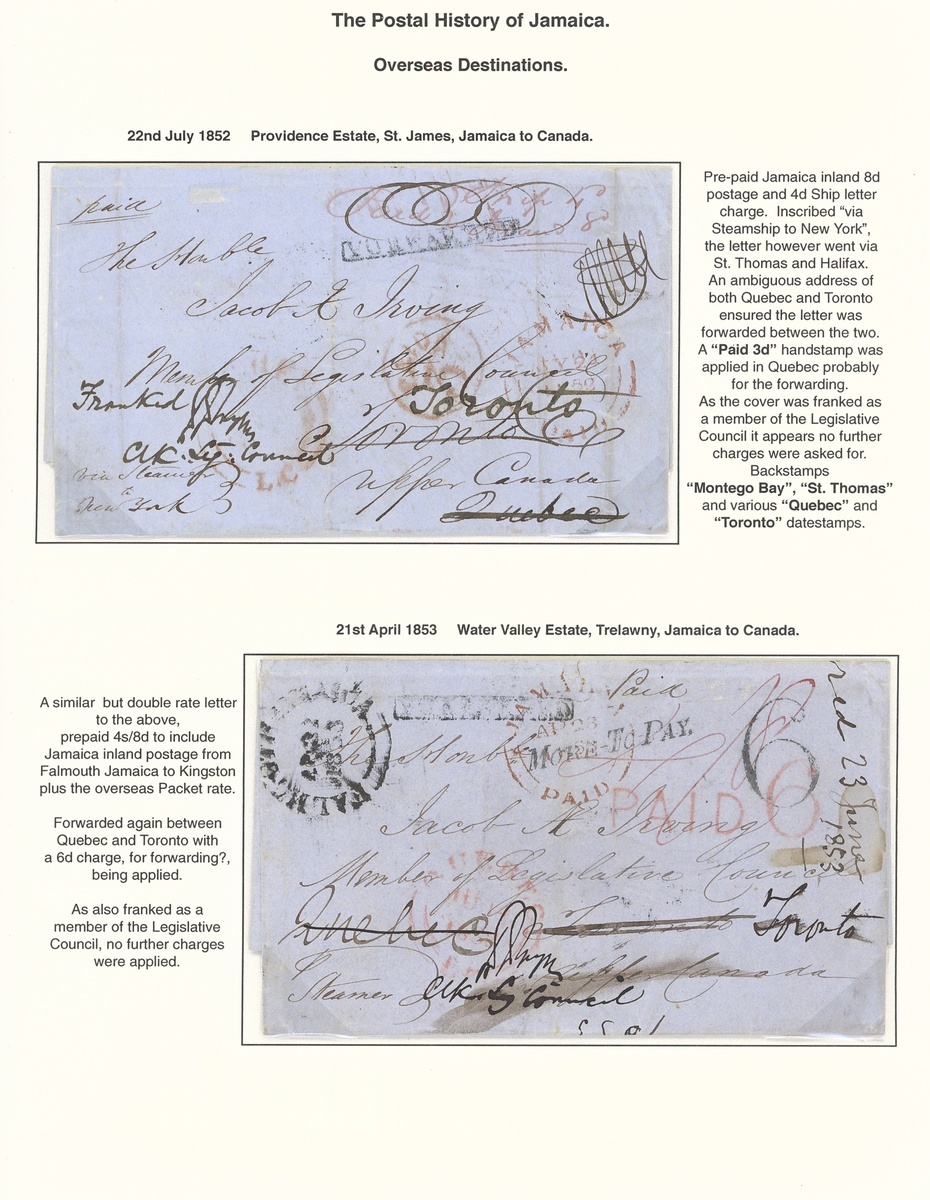 The Postal History of Jamaica.
Overseas Destinations.
22nd July 1852 Providence Estate, St. James, Jamaica to Canada.
paid
The Honble
Jacob Æ Irving
Member of Legislative Council
Franked
of Toronto
Toronto
Clk. Leg. Council
via Steamer
to
New York
Upper Canada
Quebec
Pre-paid Jamaica inland 8d
postage and 4d Ship letter
charge. Inscribed “via
Steamship to New York”,
the letter however went via
St. Thomas and Halifax.
An ambiguous address of
both Quebec and Toronto
ensured the letter was
forwarded between the two.
A “Paid 3d” handstamp was
applied in Quebec probably
for the forwarding.
As the cover was franked as
a member of the Legislative
Council it appears no further
charges were asked for.
Backstamps
“Montego Bay”, “St. Thomas”
and various “Quebec” and
“Toronto” datestamps.
21st April 1853 Water Valley Estate, Trelawny, Jamaica to Canada.
A similar but double rate letter
to the above,
prepaid 4s/8d to include
Jamaica inland postage from
Falmouth Jamaica to Kingston
plus the overseas Packet rate.
Forwarded again between
Quebec and Toronto with
a 6d charge, for forwarding?,
being applied.
As also franked as a
member of the Legislative
Council, no further charges
were applied.
Paid
FORWARDED
MORE-TO-PAY.
6
The Honble
PAID
PAID 6
rcd 23 June
1853
Jacob Æ Irving
Member of Legislative Council
Quebec Toronto Toronto
Upper Canada
Steamer Clk Lg Council